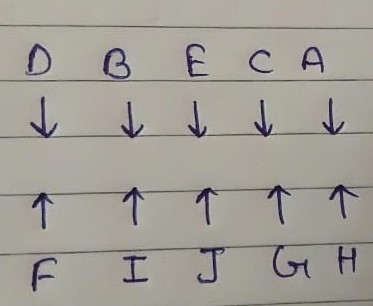 D B E C A
↓ ↓ ↓ ↓ ↓
↑ ↑ ↑ ↑ ↑
F I J G H